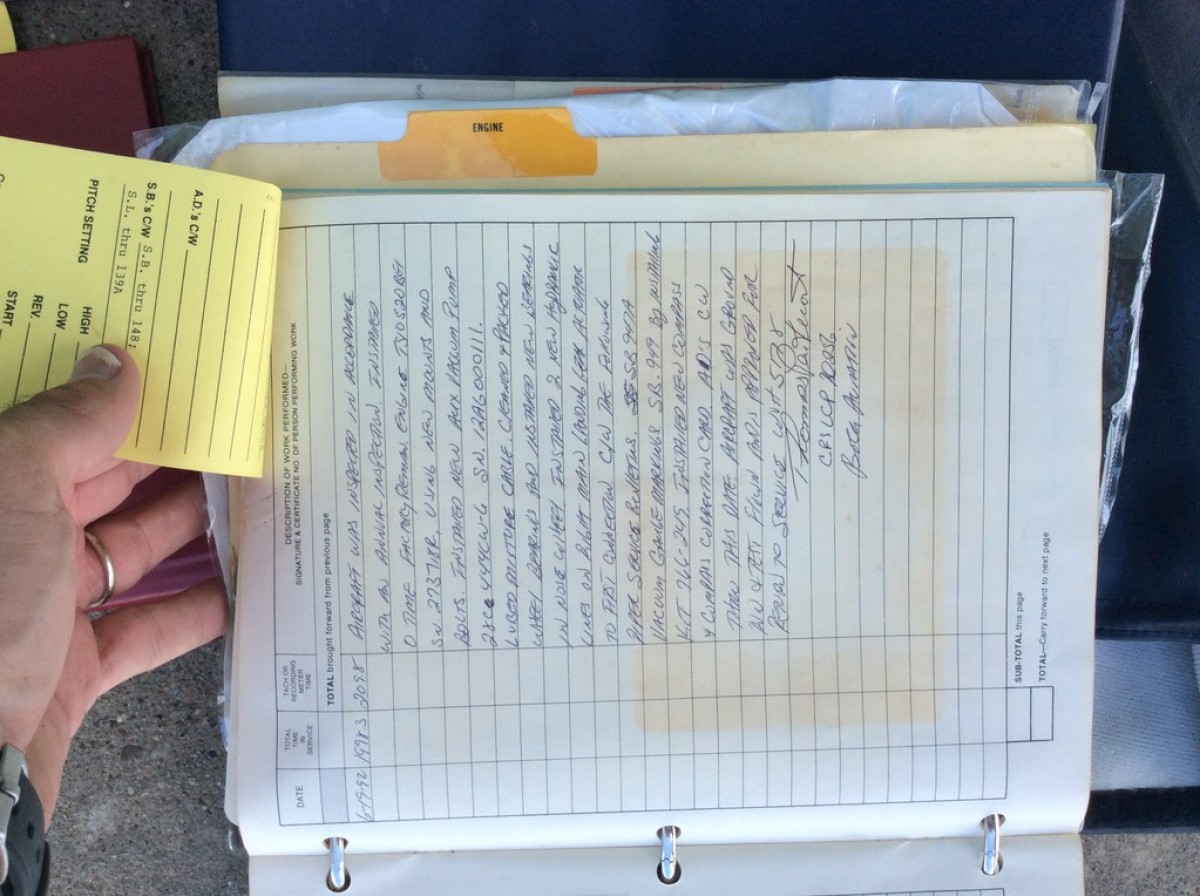 ENGINE
A.D.'s C/W
S.B.'s C/W S.B. thru 148;
S.L. thru 139A
PITCH SETTING
HIGH
LOW
REV.
START
DATE
TOTAL TIME IN SERVICE
TACH OR RECORDING METER TIME
DESCRIPTION OF WORK PERFORMED—
SIGNATURE & CERTIFICATE NO. OF PERSON PERFORMING WORK
TOTAL brought forward from previous page
6-19-92 1998.3 AIRCRAFT WAS INSPECTED IN ACCORDANCE
WITH AN ANNUAL INSPECTION. INSTALLED
0 TIME FACTORY REMAN. ENGINE
SN. USING NEW MOUNTS AND
BOLTS. INSTALLED NEW AUX VACUUM PUMP
SN.
LUBED MIXTURE CABLE. CLEANED & PACKED
WHEEL BEARINGS AND INSTALLED NEW BEARINGS
IN NOSE WHEEL. INSTALLED 2 NEW HYDRAULIC
LINES ON RIGHT MAIN LANDING GEAR ACTUATOR
C/W THE FOLLOWING
PIPER SERVICE BULLETINS SB
VACUUM GAUGE MARKINGS SB 949 BY INSTALLING
KIT 766-249. INSTALLED NEW COMPASS
& COMPASS CORRECTION CARD AD'S C/W
THRU THIS DATE AIRCRAFT WAS GROUND
RUN & TEST FLOWN AND IS APPROVED FOR
RETURN TO SERVICE
SUB-TOTAL this page
TOTAL—Carry forward to next page